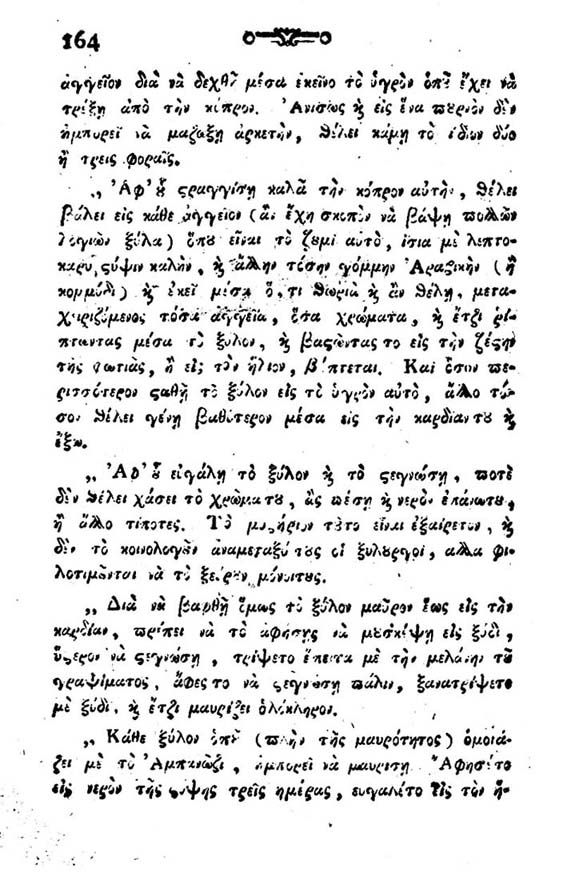 164
ἀγγεῖον διὰ νὰ δεχθῇ μέσα ἐκεῖνο τὸ ὑγρὸν ὁποῦ ἔχει νὰ
τρέξῃ ἀπὸ τὴν κόπρον. Ἀνίσως ϗ εἰς ἕνα πουρνὸν δὲν
ἠμπορεῖ νὰ μαζωξῃ ἀρκετὴν, θέλει κάμῃ τὸ ἴδιον δύο
ἢ τρεῖς φοραῖς.
„ Ἀφ' ȣ̃ ϛραγγίσῃ καλὰ τὴν κόπρον αὐτὴν, θέλει
βάλει εἰς κάθε ἀγγεῖον (ἂν ἔχῃ σκοπὸν νὰ βάψῃ πολλῶν
λογιῶν ξύλα) ὁποῦ εἶναι τὸ ζυμὶ αὐτὸ, ἴσια μὲ λεπτο-
καρυ, ϛύψιν καλὴν, ϗ ἄλλην τόσην γόμμην Ἀραβικὴν (ἢ
κομμύδι) ϗ ἐκεῖ μέσα ὅ,τι θωριὰ ϗ ἂν θέλῃ, μετα-
χειριζόμενος τόσα ἀγγεῖα, ὅσα χρώματα, ϗ ἔτζι ῥί-
πτωντας μέσα τὸ ξύλον, ϗ βαϛῶντας το εἰς τὴν ζέϛην
τῆς φωτιᾶς, ἢ εἰς τὸν ἥλιον, βάπτεται. Καὶ ὅσον πε-
ρισσότερον ϛαθῇ τὸ ξύλον εἰς τὸ ὑγρὸν αὐτὸ, ἄλλο τό-
σον θέλει γένῃ βαθύτερον μέσα εἰς τὴν καρδίαν τȣ ϗ
ἔξω.
„ Ἀφ' ȣ̃ εἰγάλῃ τὸ ξύλον ϗ τὸ ϛεγνώσῃ, ποτὲ
δὲν θέλει χάσει τὸ χρῶμα τȣ, ἂς πέσῃ ϗ νερὸν ἐπάνω τȣ,
ἢ ἄλλο τίποτες. Τὸ μυϛήριον τȣτο εἶναι ἐξαίρετον, ϗ
δὲν τὸ κοινολογȣν ἀναμεταξύ τȣς οἱ ξυλουργοὶ, ἀλλὰ φι-
λοτιμȣνται νὰ τὸ ξεύρȣν μόνοι τȣς.
„ Διὰ νὰ βαφθῇ ὅμως τὸ ξύλον μαῦρον ἕως εἰς τὴν
καρδίαν, πρέπει νὰ τὸ ἀφήσῃς νὰ μȣσκέψῃ εἰς ξύδι,
ὕϛερον νὰ ϛεγνώσῃ, τρίψετο ἔπειτα μὲ τὴν μελάνην τȣ
γραψίματος, ἄφες το νὰ ϛεγνώσῃ πάλιν, ξανατρίψετο
μὲ ξύδι, ϗ ἔτζι μαυρίζει ὁλόκληρον.
„ Κάθε ξύλον ὁπȣ (πλὴν τῆς μαυρότητος) ὁμοιά-
ζει μὲ τὸ Ἀμπανώζι, ἠμπορεῖ νὰ μαυρίσῃ. Ἄφησέ το
εἰς νερὸν τῆς ϛύψης τρεῖς ἡμέρας, ευγαλέτο εἰς τὸν ἥ-